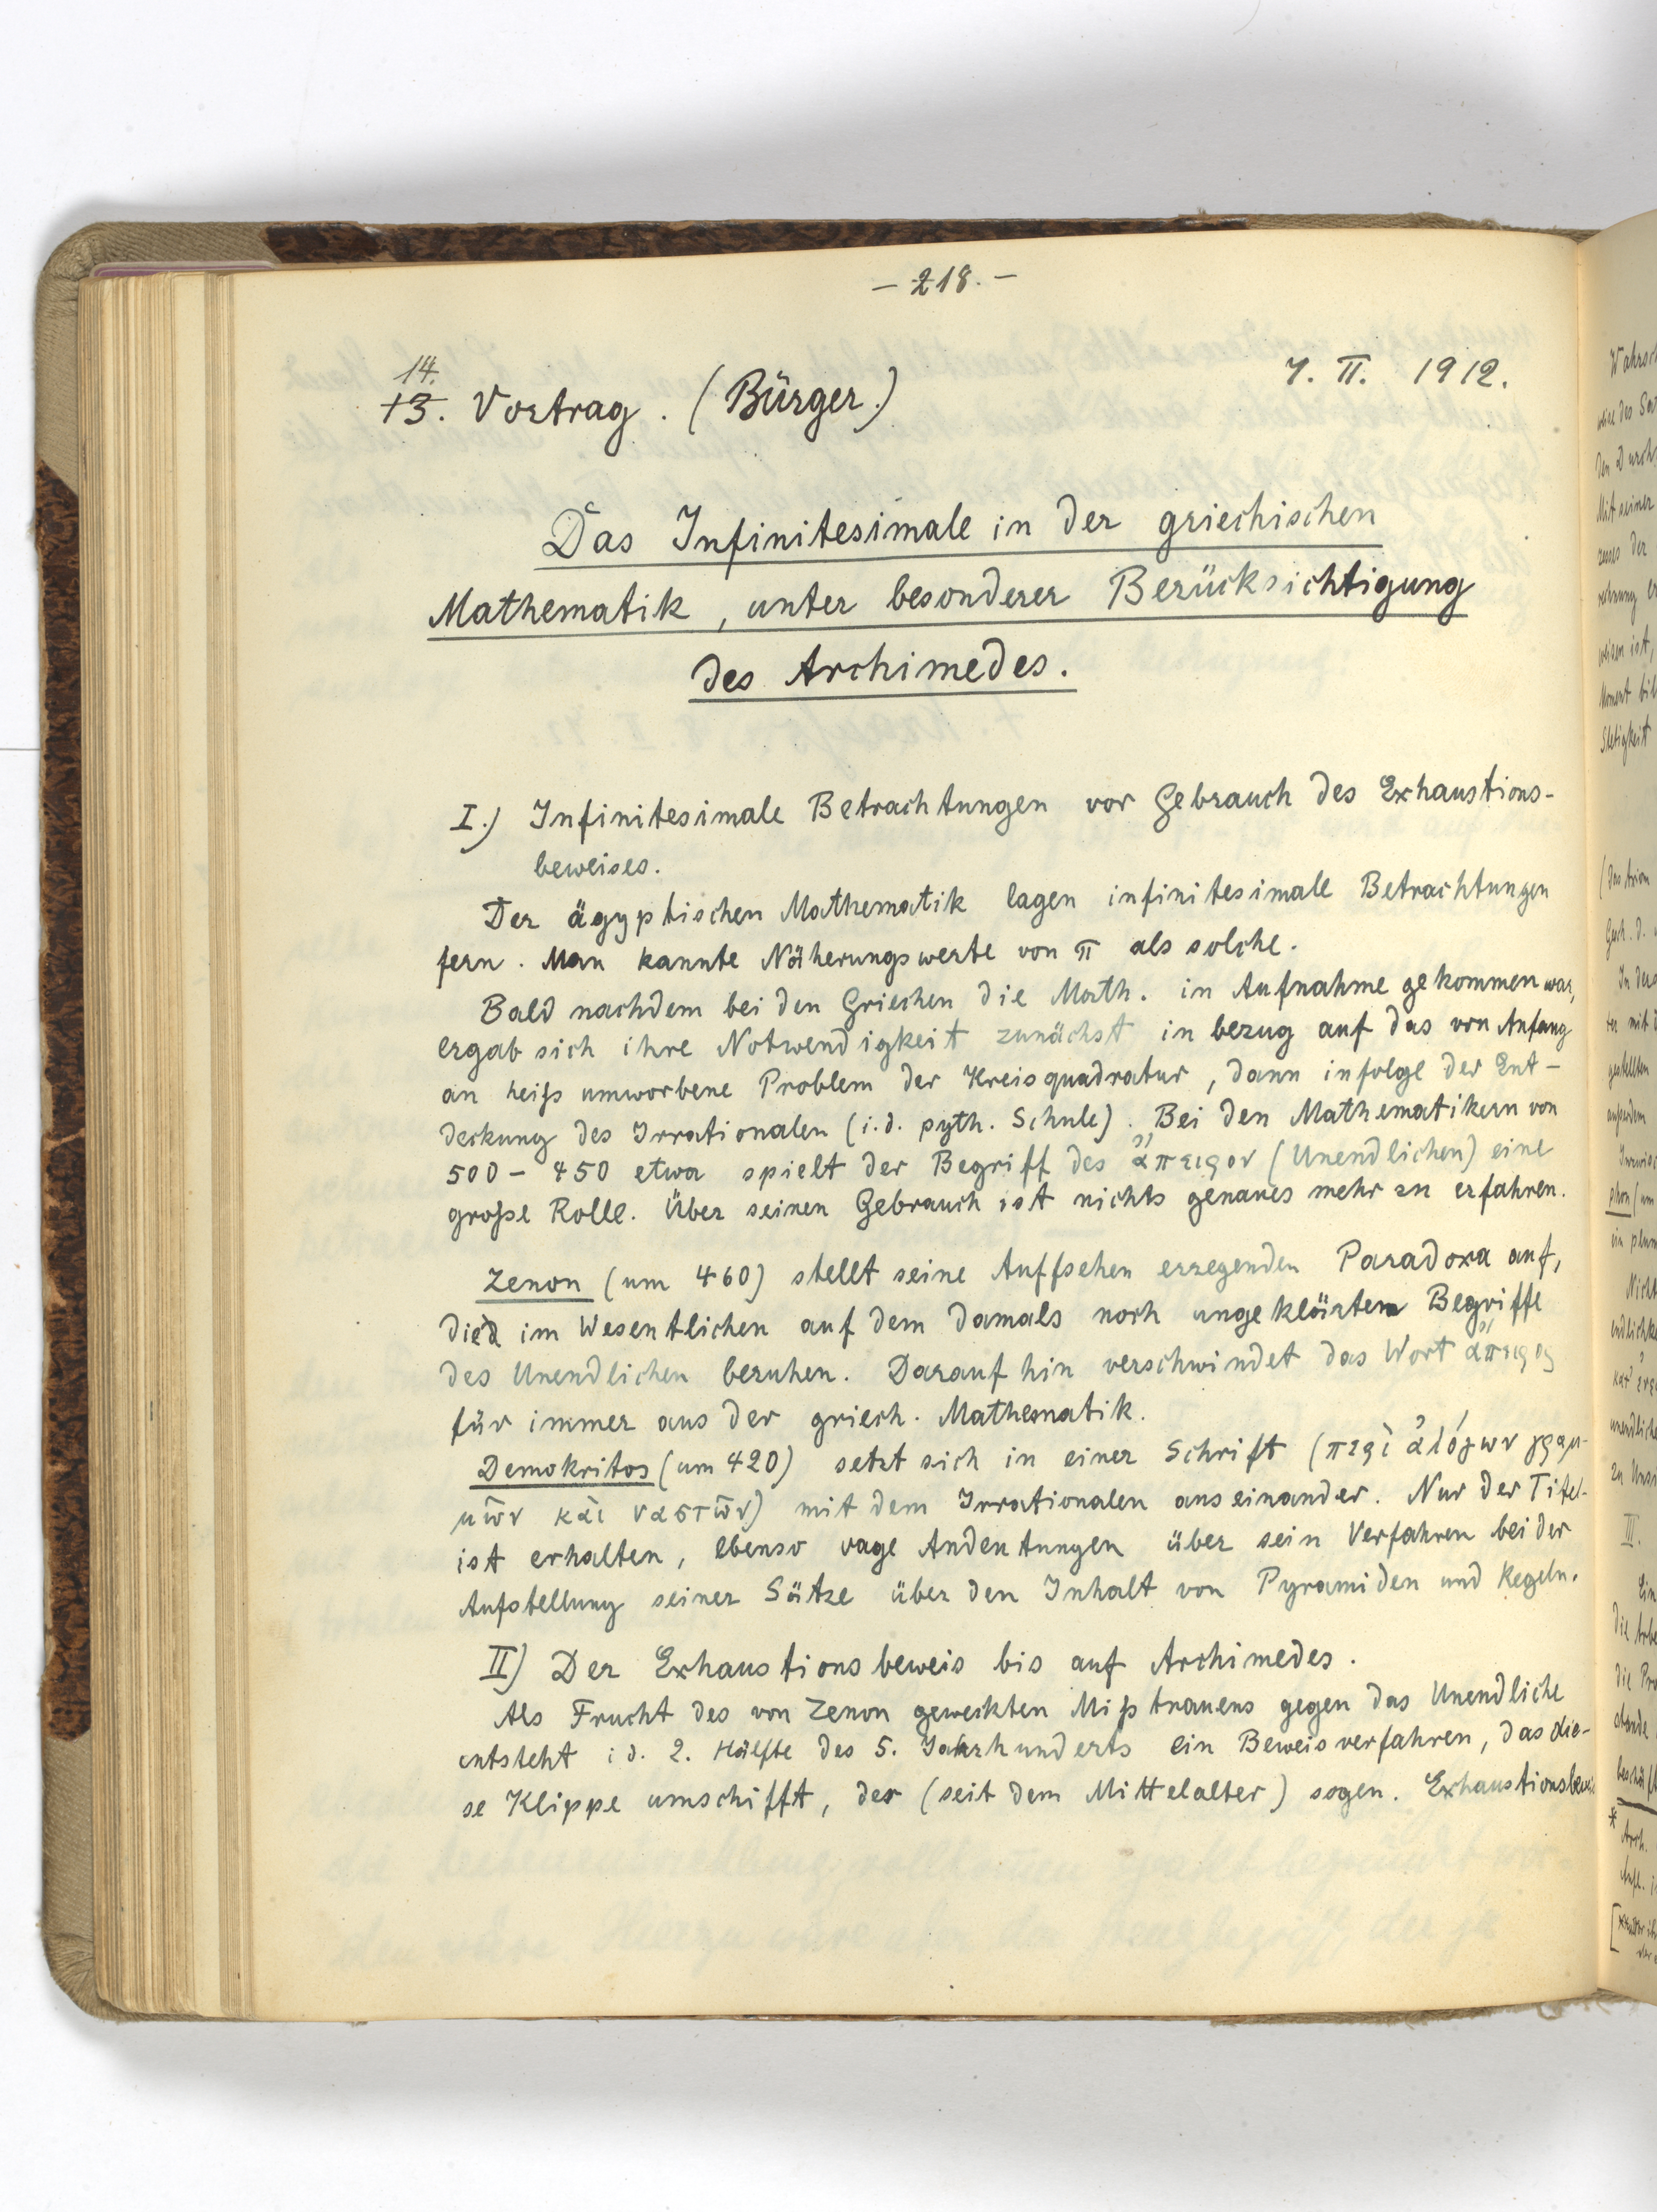 – 218. –
14.
13. Vortrag. (Bürger.)
7. II. 1912.
Das Infinitesimale in der griechischen
Mathematik, unter besonderer Berücksichtigung
des Archimedes.
I.) Infinitesimale Betrachtungen vor Gebrauch des Exhaustions-
beweises.
Der ägyptischen Mathematik lagen infinitesimale Betrachtungen
fern. Man kannte Näherungswerte von π als solche.
Bald nachdem bei den Griechen die Math. in Aufnahme gekommen war,
ergab sich ihre Notwendigkeit zunächst in bezug auf das von Anfang
an heiß umworbene Problem der Kreisquadratur, dann infolge der Ent-
deckung des Irrationalen (i. d. pyth. Schule). Bei den Mathematikern von
500 – 450 etwa spielt der Begriff des ἄπειρον (Unendlichen) eine
große Rolle. Über seinen Gebrauch ist nichts genaues mehr zu erfahren.
Zenon (um 460) stellt seine Auffsehen erregenden Paradoxa auf,
die im Wesentlichen auf dem damals noch ungeklärten Begriffe
des Unendlichen beruhen. Daraufhin verschwindet das Wort ἄπειρον
für immer aus der griech. Mathematik.
Demokritos (um 420) setzt sich in einer Schrift (περὶ ἀλόγων γραμ-
μῶν καὶ ναστῶν) mit dem Irrationalen auseinander. Nur der Titel
ist erhalten, ebenso vage Andeutungen über sein Verfahren bei der
Aufstellung seiner Sätze über den Inhalt von Pyramiden und Kegeln.
II) Der Exhaustionsbeweis bis auf Archimedes.
Als Frucht des von Zenon geweckten Mißtrauens gegen das Unendliche
entsteht i. d. 2. Hälfte des 5. Jahrhunderts ein Beweisverfahren, das die-
se Klippe umschifft, der (seit dem Mittelalter) sogen. Exhaustionsbeweis